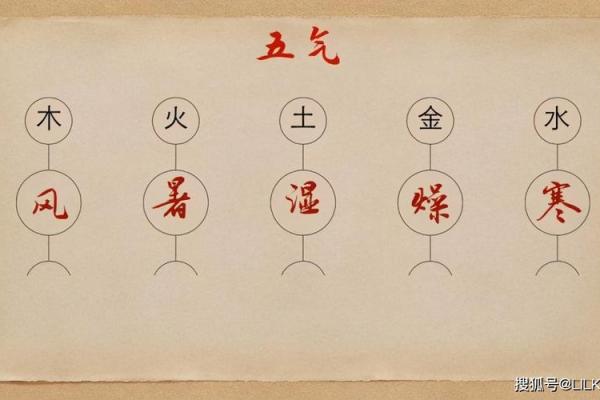 五气
木 火 土 金 水
风 暑 湿 燥 寒
搜狐号@LILK